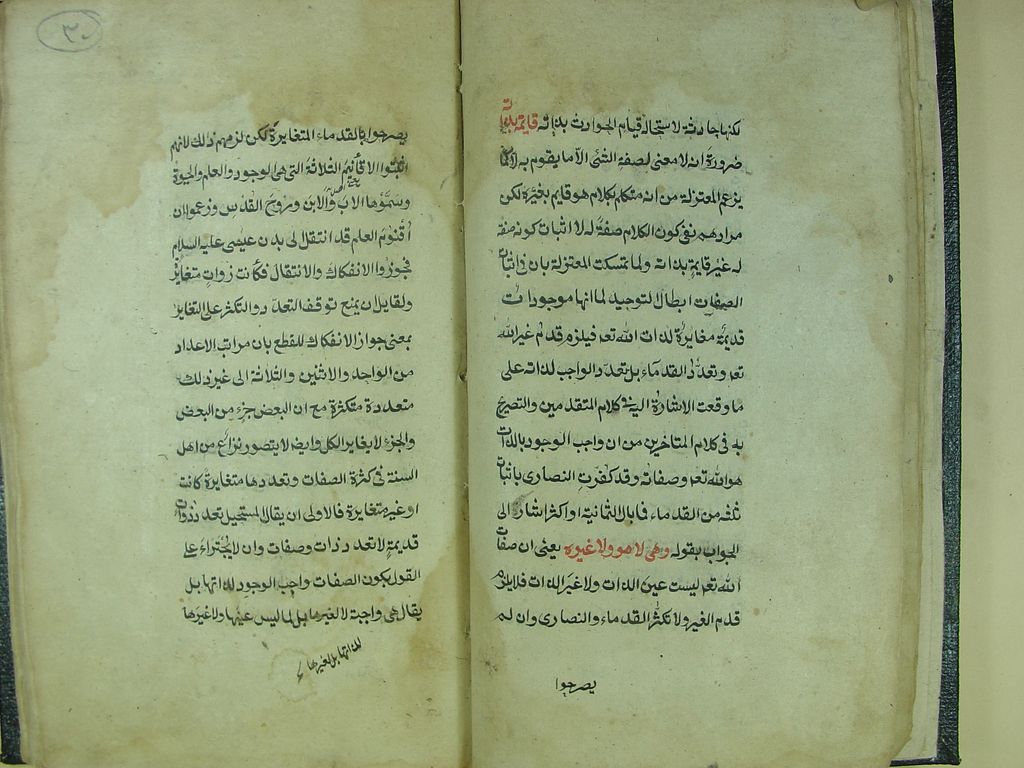 لكنها حادثة لاستحالة قيام الحوادث بذاته قايمة بذاته
ضرورة ان لا معنى لصفة الشئ الا ما يقوم به لا كما
يزعم المعتزلة من انه متكلم بكلام هو قايم بغيره لكن
مرادهم نفى كون الكلام صفة له لا اثبات كونه صفة
له غير قايمة بذاته ولما تمسكت المعتزلة بان فى اثبات
الصفات ابطال التوحيد لما انها موجودات
قديمة مغايرة لذات الله تعه فيلزم قدم غير الله
تعه وتعدد القدماء بل تعدد الواجب لذاته على
ما وقعت الاشارة اليه فى كلام المتقدمين والتصريح
به فى كلام المتاخرين من ان واجب الوجود بالذات
هو الله تعه وصفاته وقد كفرت النصارى باثبات
ثلثة من القدماء فما بال الثمانية او اكثر اشار الى
الجواب بقوله وهى لا هو ولا غيره يعنى ان صفات
الله تعه ليست عين الذات ولا غير الذات فلا يلزم
قدم الغير ولا تكثر القدماء والنصارى وان لم
يصرحوا
٣٠
يصرحوا بالقدماء المتغايرة لكن لزمهم ذلك لانهم
اثبتوا الاقانيم الثلاثة التى هى الوجود والعلم والحيوة
وسموها الاب والابن وروح القدس وزعموا ان
اقنوم العلم قد انتقل الى بدن عيسى عليه السلام
فجوزوا الانفكاك والانتقال فكانت ذوات متغايرة
ولقايل ان يمنع توقف التعدد والتكثر على التغاير
بمعنى جواز الانفكاك للقطع بان مراتب الاعداد
من الواحد والاثنين والثلاثة الى غير ذلك
متعددة متكثرة مع ان البعض جزء من البعض
والجزء لا يغاير الكل وايضا لا يتصور نزاع من اهل
السنة فى كثرة الصفات وتعددها متغايرة كانت
او غير متغايرة فالاولى ان يقال المستحيل تعدد ذوات
قديمة لا تعدد ذات وصفات وان لا يجتراء على
القول بكون الصفات واجب الوجود لذاتها بل
يقال هى واجبة لا لغيرها بل لما ليس عينها ولا غيرها
لذاتها بل لغيرها